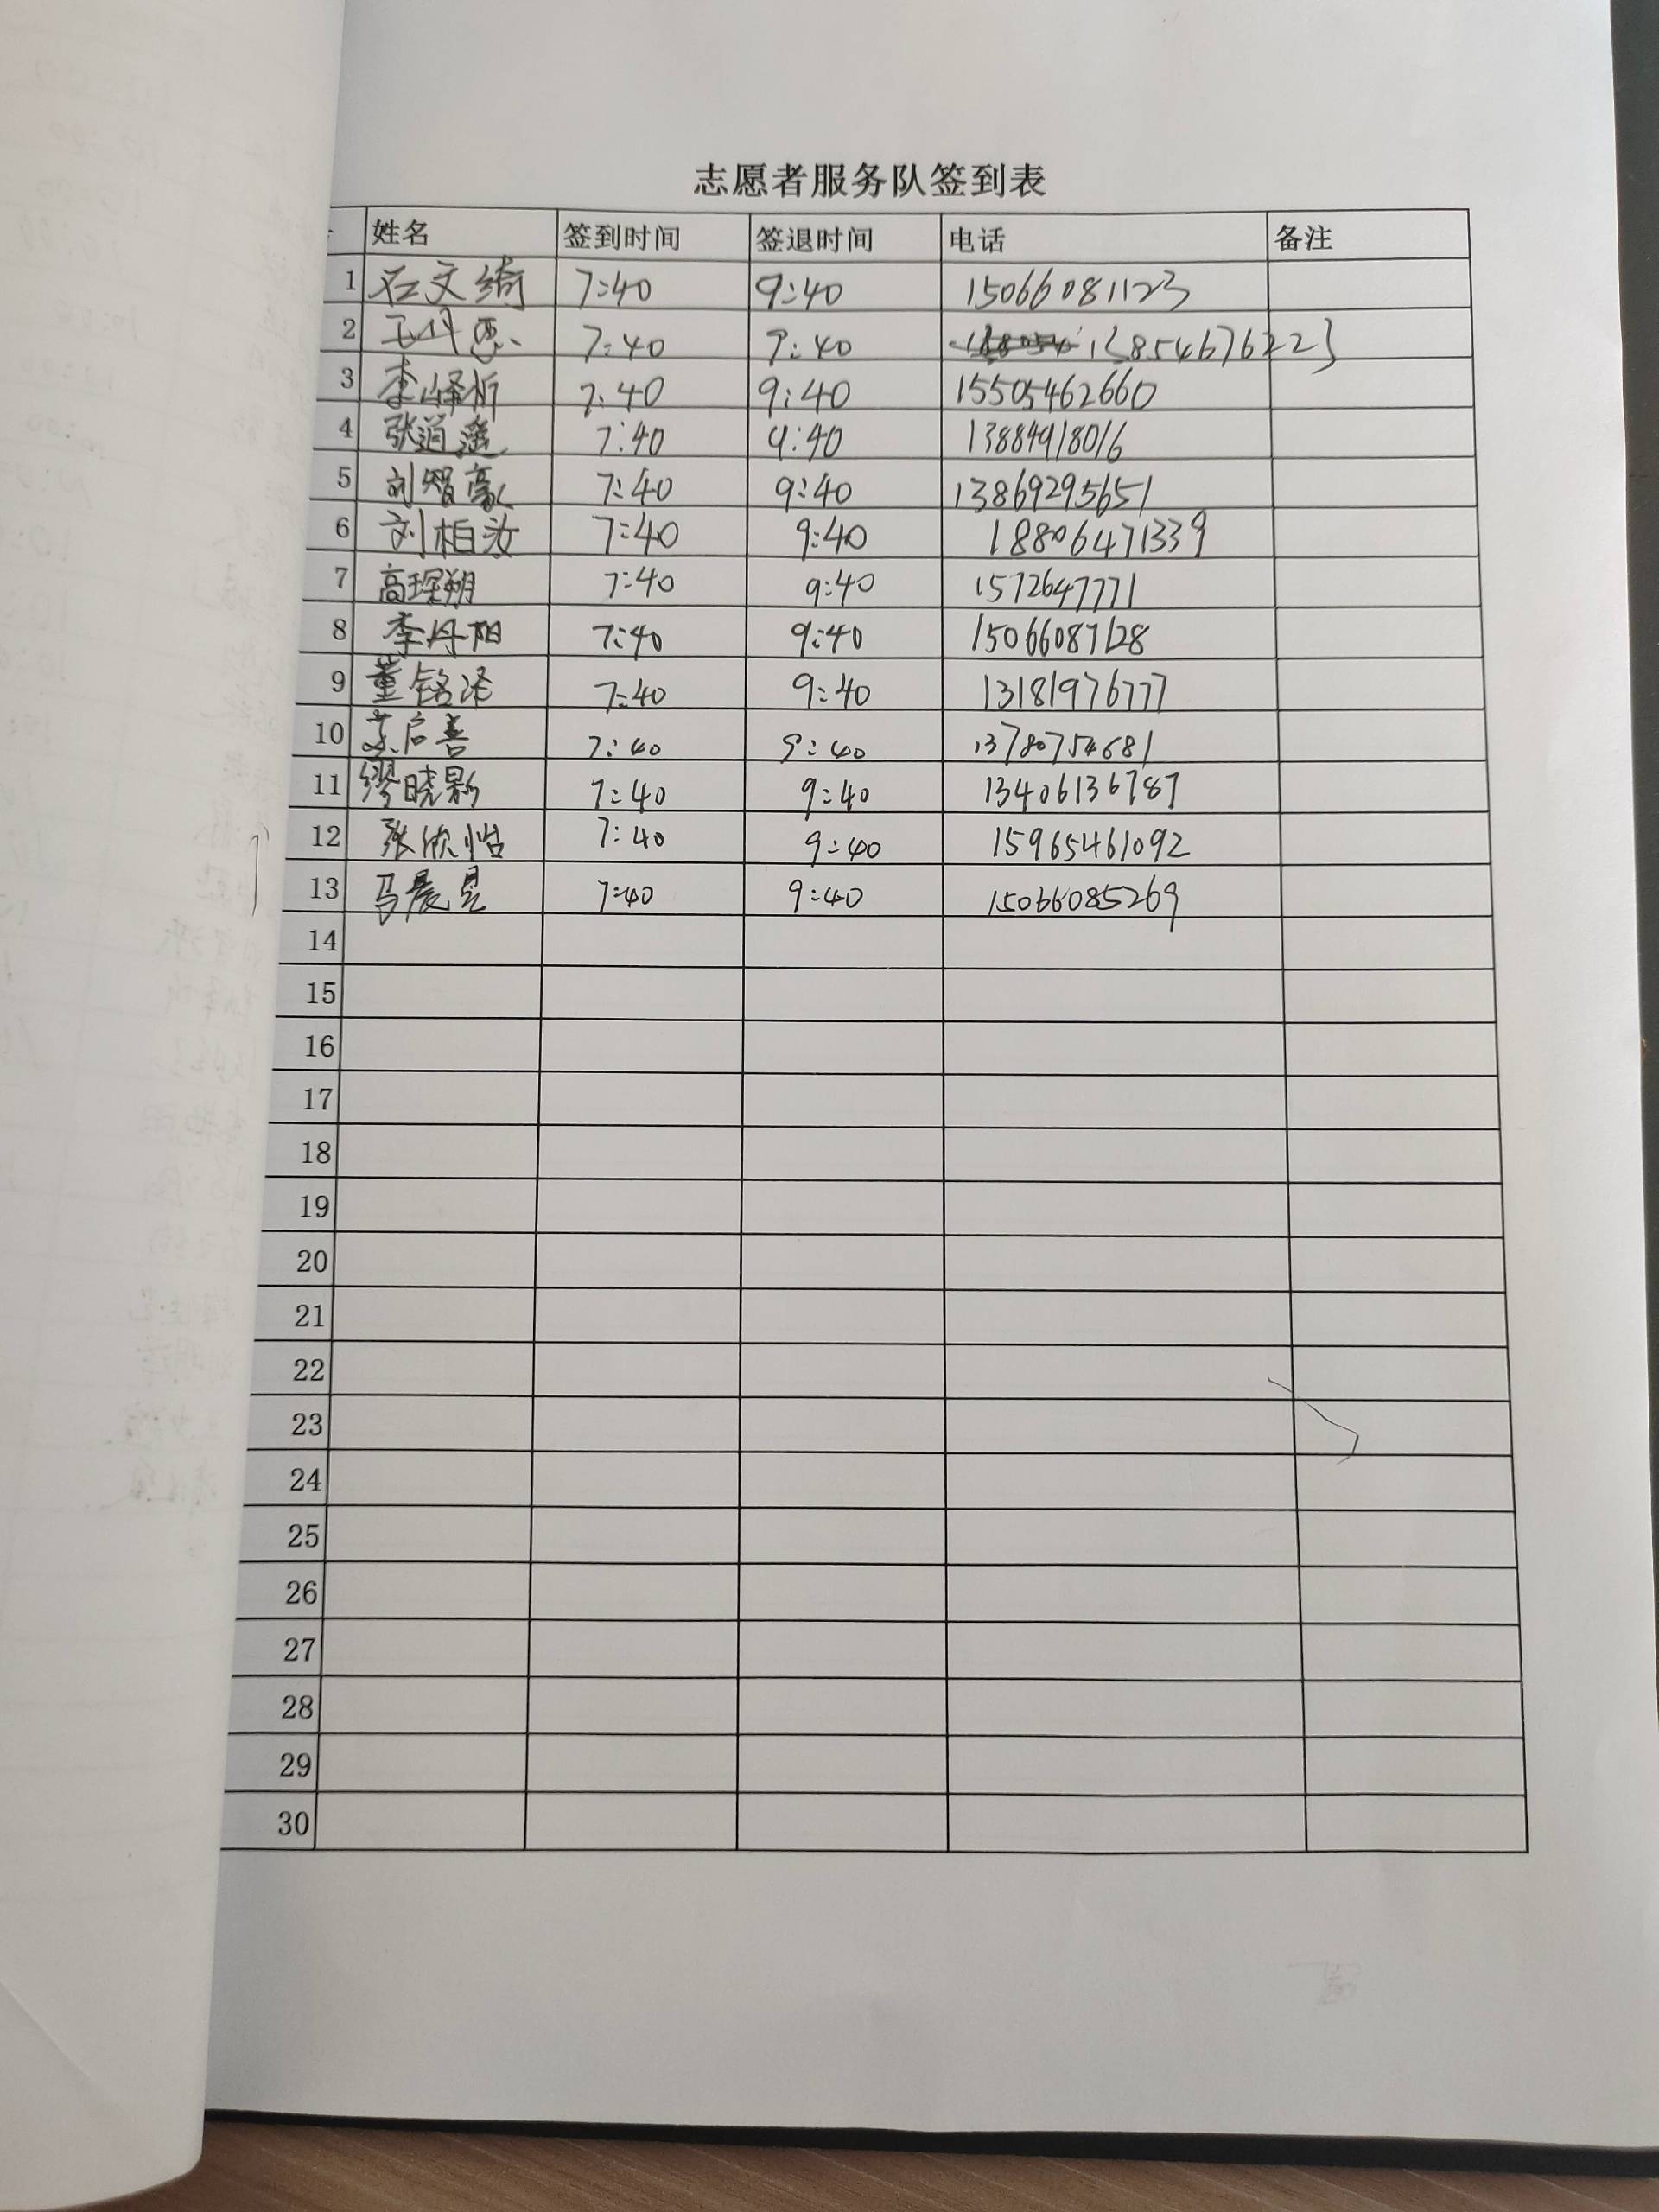 志愿者服务队签到表
姓名 签到时间 签退时间 电话 备注
1 石文绮 7:40 9:40 15066081123
2 王丹 7:40 9:40 13854676223
3 李峄析 7:40 9:40 15505462660
4 张逍遥 7:40 9:40 13884918016
5 刘智豪 7:40 9:40 13869295651
6 刘柏汝 7:40 9:40 18806471339
7 高琛朔 7:40 9:40 1572647771
8 李丹阳 7:40 9:40 15066087128
9 董铭泽 7:40 9:40 13181976777
10 启善 7:40 9:40 13780754681
11 缪晓影 7:40 9:40 13406136787
12 张欣怡 7:40 9:40 15965461092
13 马晨昱 7:40 9:40 15066085269
14
15
16
17
18
19
20
21
22
23
24
25
26
27
28
29
30